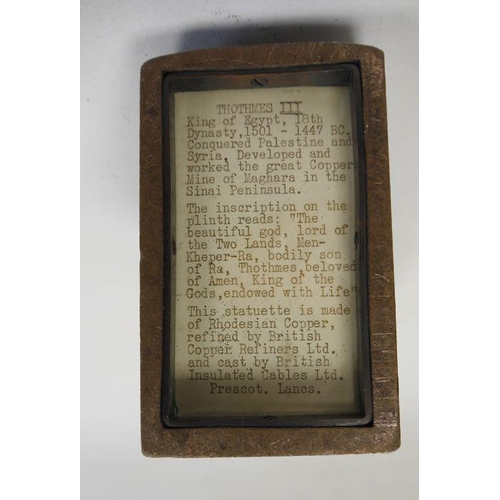 THOTHMES III
King of Egypt, 18th
Dynasty,1501 - 1447 BC.
Conquered Palestine and
Syria, Developed and
worked the great Copper
Mine of Maghara in the
Sinai Peninsula.
The inscription on the
plinth reads: "The
beautiful god, lord of
the Two Lands, Men-
Kheper-Ra, bodily son
of Ra, Thothmes,beloved
of Amen, King of the
Gods,endowed with Life"
This statuette is made
of Rhodesian Copper,
refined by British
Copper Refiners Ltd.
and cast by British
Insulated Cables Ltd.
Prescot. Lancs.